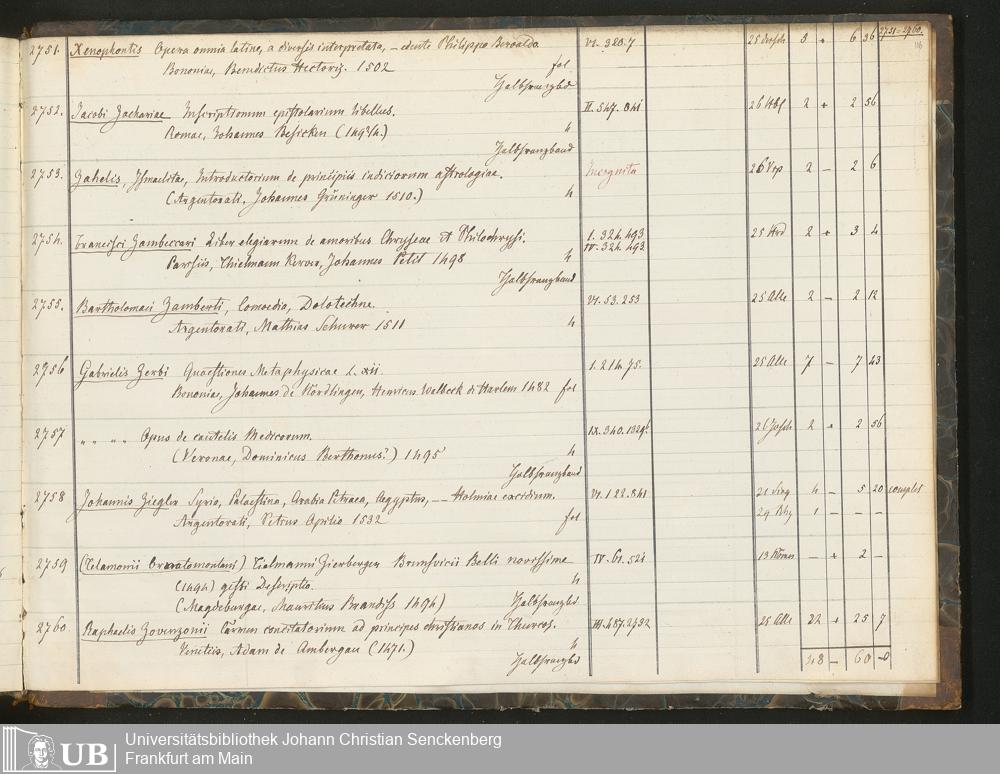 2751-2760.
116
2751. Xenophontis Opera omnia latine, a diversis interpretata, – edente Philippo Beroaldo. VI. 320.7 3 + 6 36
Bononiae, Benedictus Hectoris. 1502 fol
Halbfranzbd
2752. Jacobi Zachariae Inscriptionum epistolarium libellus. II. 547. 841 2 + 2 56
Romae, Johannes Besicken (149 4
Halbfranzband
2753. Zahelis, Ismaelitae, Introductorium de principiis iudiciorum astrologiae. Incognita 2 – 2 6
(Argentorati, Johannes Grüninger 1510.) 4
2754. Francisci Zambeccari Liber elegiarum de amoribus Chryseae et Philochrysi. I. 324. 493 2 + 3 4
IV. 324. 493
Parisiis, Thielmann Kerver, Johannes Petit 1498 4
Halbfranzband
2755. Bartholomaei Zamberti, Comoedia, Dolotechne. VI. 53. 253 25 Alle 2 – 2 12
Argentorati, Mathias Schurer 1511 4
2756 Gabrielis Zerbi Quaestiones Metaphysicae L. xii. I. 214. 75. 25 Alle 7 – 7 43
Bononiae, Johannes de Nördlingen, Henricus Walbeck di Harlem 1482 fol
2757 " " " " Opus de cautelis Medicorum. IX. 340. 26 Josch 2 + 2 56
(Veronae, Dominicus Berthonus?) 1495 4
Halbfranzband
2758 Johannis Ziegler Syria, Palaestina, Arabia Petraea, Aegyptus, – – Holmiae excidium. VI. 122. 841 4 – 5 20 complet
Argentorati, Petrus Opilio 1532 fol 1 – – –
2759 Tielmanni Zierbergen Brunsvicii Belli novissime IV. 61. 521 – + 2 –
(1494) gesti Descriptio. 4
(Magdeburgae, Mauritius Brandiss 1494) Halbfranzbd
2760. Raphaelis Zovenzonii Carmen concitatorium ad principes christianos in Thurcos. III. 457. 2432 25 Alle 22 + 25 7
Venetiis, Adam de Ambergau (1471.) 4
Halbfranzbd 48 – 60 –
UB
Universitätsbibliothek Johann Christian Senckenberg
Frankfurt am Main